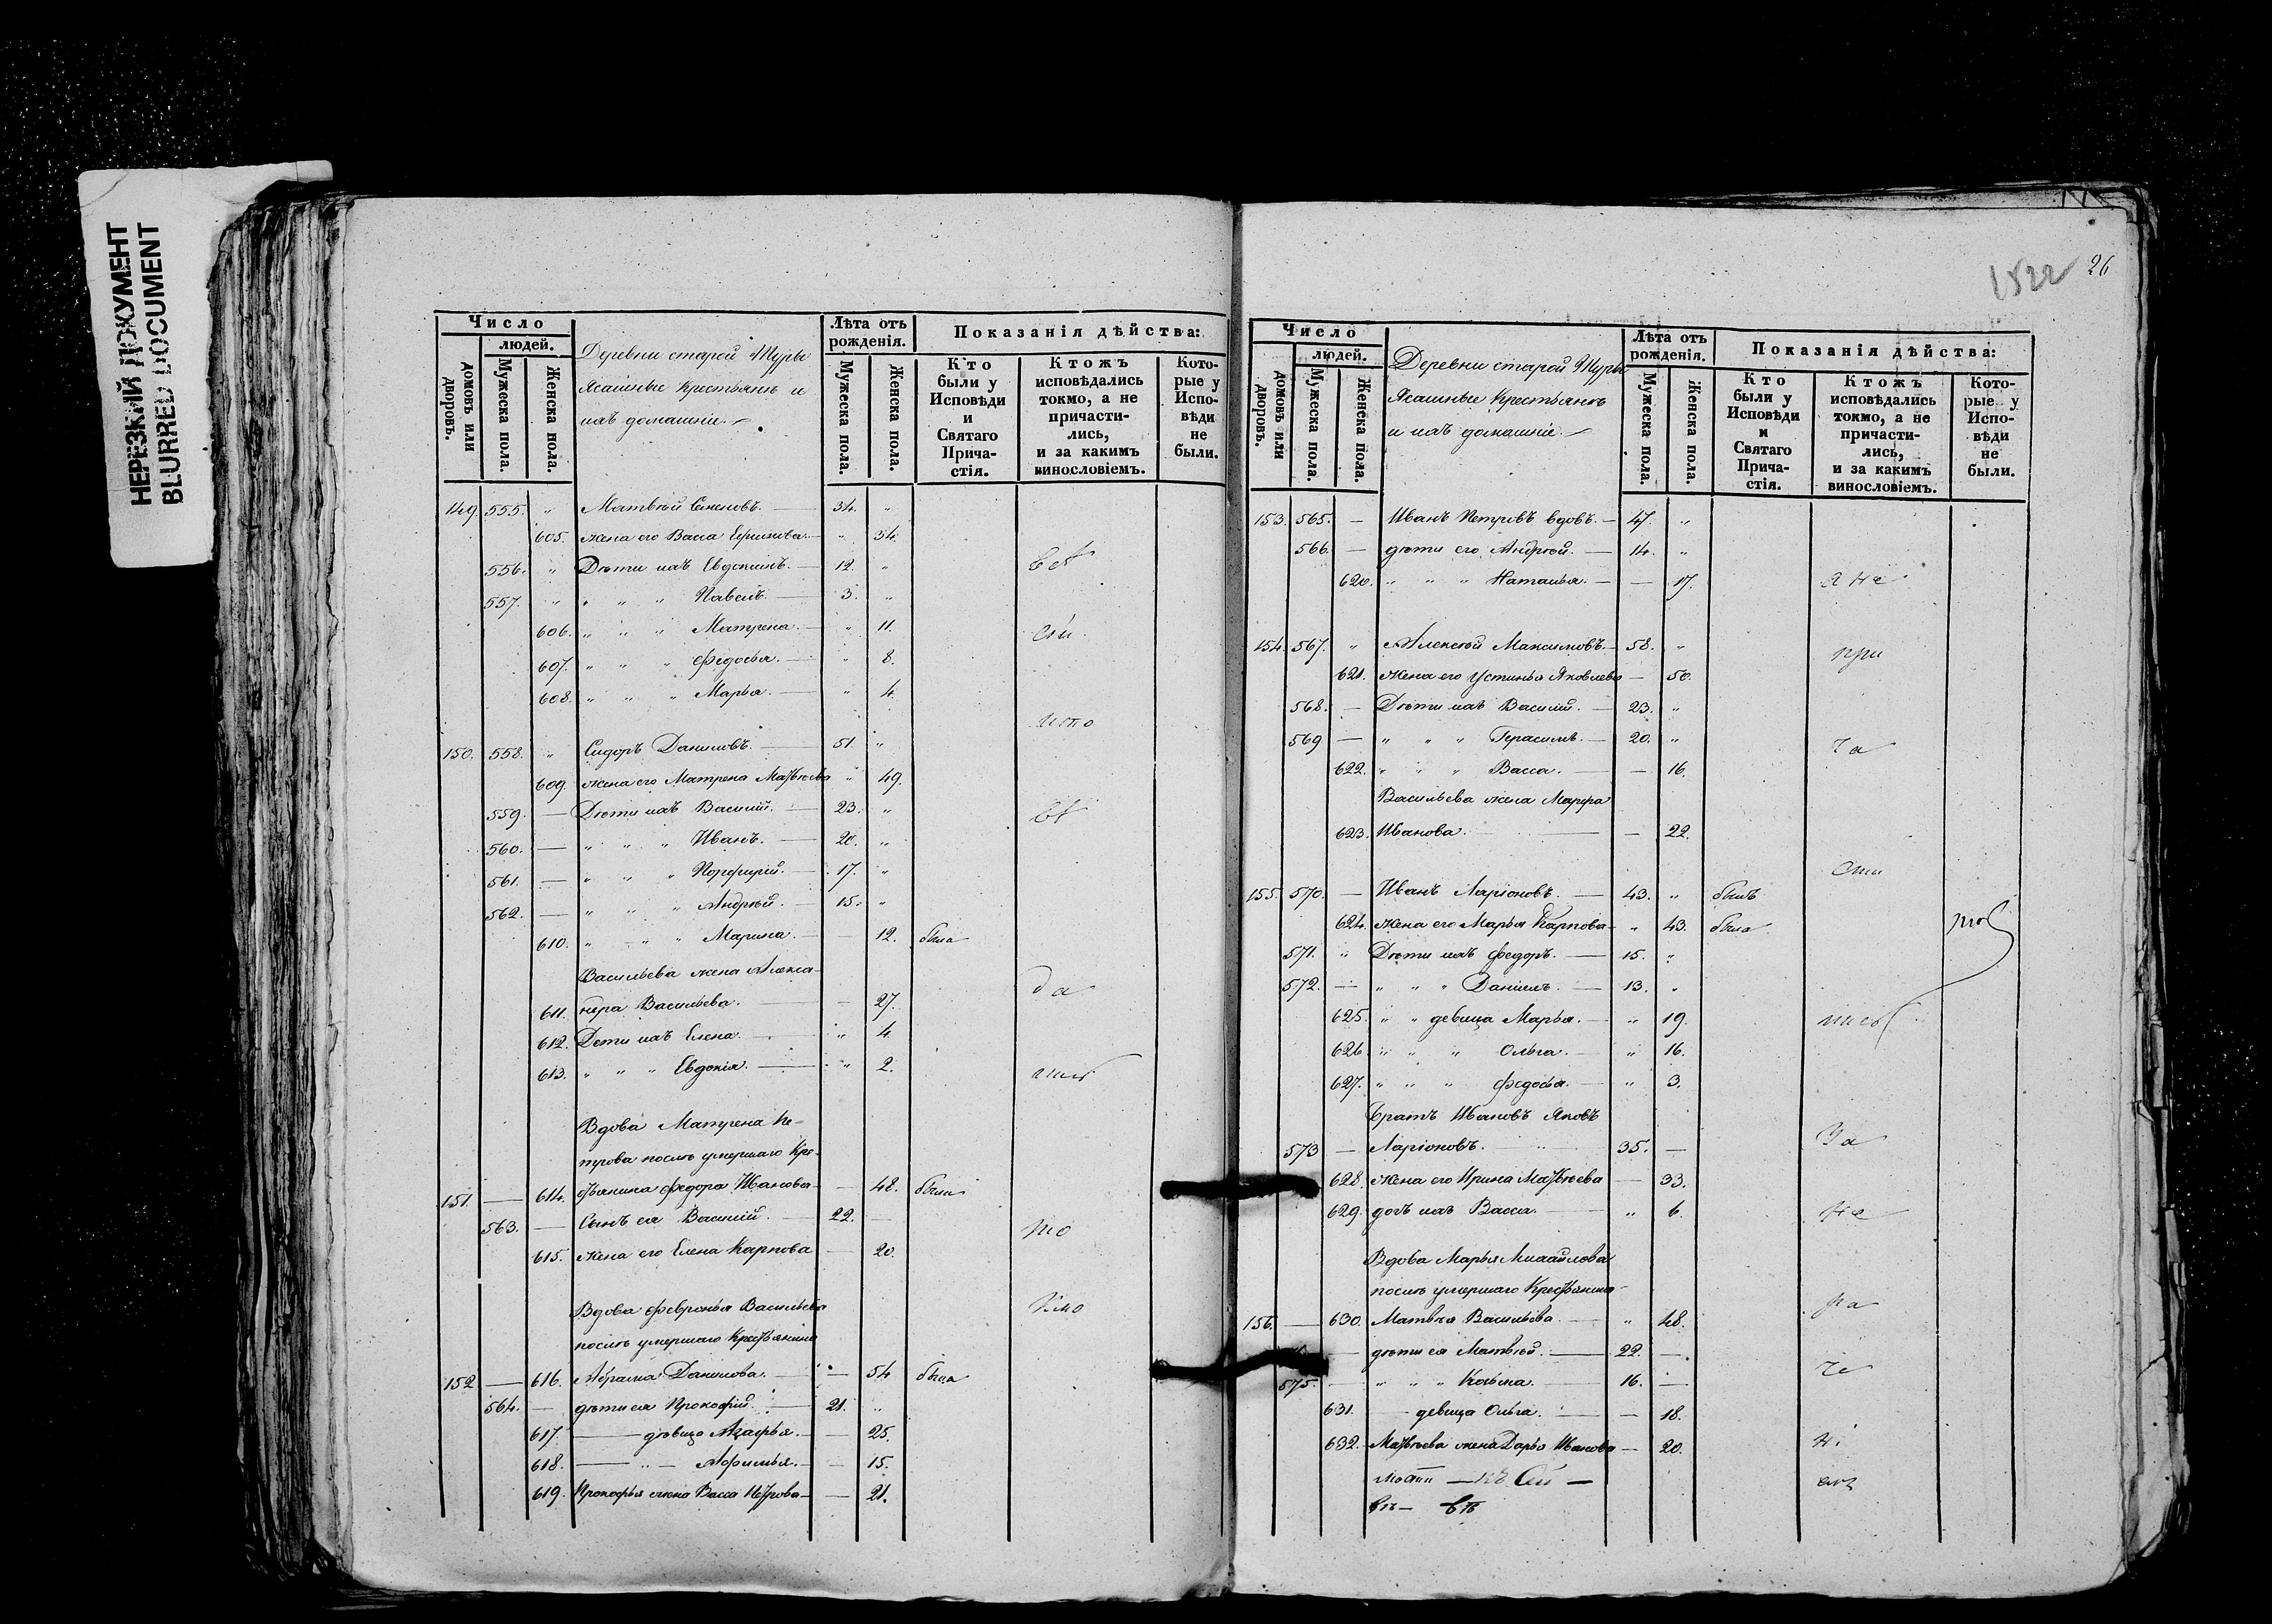 НЕРЕЗКИЙ ДОКУМЕНТ
BLURRED DOCUMENT
Число
людей.
домовъ или дворовъ.
Мужеска пола.
Женска пола.
Деревни старой Шуры
Ясашные Крестьянъ и
ихъ домашніе.
Лѣта отъ рожденія.
Мужеска пола.
Женска пола.
Показанія дѣйства:
Кто были у Исповѣди и Святаго Причастія.
Ктожъ исповѣдались токмо, а не причастились, и за какимъ винословіемъ.
Которые у Исповѣди не были.
149. 555. " Матвѣй Семеновъ. — 34. "
605. жена его Васса Ефимова. — " 34.
556. " Дѣти ихъ Евдокимъ. — 12. "
557. " " " " Павелъ. — 3. "
606. " " " Матрена. — " 11.
607. " " " Федосья. — " 8.
608. " " " Марья. — " 4.
150. 558. " Сидоръ Даниловъ. — 51. "
609. жена его Матрена Матвѣева " 49.
559. — Дѣти ихъ Василій. — 23. "
560. — " " " Иванъ. — 20. "
561. — " " " Порфирій. — 17. "
562. — " " " Андрей. — 15. "
610. " " " Марина. — 12. была
Васильева жена Алекса-
611. ндра Васильева. — — 27.
612. Дети ихъ Елена. — " 4.
613. " " " Евдокія. — " 2.
Вдова Матрена Пе-
трова послѣ умершаго Кре-
151. — 614. стьянина Федора Иванова — 48. была
563. — Сынъ ея Василій. — 22. —
615. жена его Елена Карпова — 20.
Вдова Февронья Васильева
послѣ умершаго Крестьянина
152 — 616. Абрама Данилова. — — 54 была
564. — дѣти ея Прокофій. — 21. "
617. — дѣвица Агафья. — — 25.
618. — " — Афимья. — — 15.
619. Прокофья жена Васса Петрова — — 21.
1822
26
Число
людей.
домовъ или дворовъ.
Мужеска пола.
Женска пола.
Деревни старой Шуры
Ясашные Крестьянъ
и ихъ домашніе.
Лѣта отъ рожденія.
Мужеска пола.
Женска пола.
Показанія дѣйства:
Кто были у Исповѣди и Святаго Причастія.
Ктожъ исповѣдались токмо, а не причастились, и за какимъ винословіемъ.
Которые у Исповѣди не были.
153. 565. — Иванъ Петровъ вдовъ. — 47. "
566. — дѣти его Андрей. — 14. "
620. " " " Наталья. — — 17. а не
154. 567. " Алексѣй Максимовъ. — 58. " при
621. жена его Устинья Яковлева — 50.
568. — Дѣти ихъ Василій. — 23. "
569 — " " " Герасимъ. — 20. " ча
622. " " " Васса. — — 16.
Васильева жена Марфа
623. Иванова. — — 22.
155. 570. — Иванъ Ларіоновъ. — 43. " былъ
624. жена его Марья Карпова — " 43. была
571. " Дѣти ихъ Федоръ. — 15. "
572. — " " " Даніилъ. — 13. "
625. " " девица Марья. — " 19.
626. " " " Ольга. — " 16.
627. " " " Федосья. — " 3.
братъ Ивановъ Яковъ
573 — Ларіоновъ. 35. —
628. жена его Ирина Матвѣева — 33.
629. дочь ихъ Васса. — " 6.
Вдова Марья Михайлова
послѣ умершаго Крестьянина
156. — 630. Матвѣя Васильева. — " 48.
— дѣти ея Матвѣй. — 22. —
575. — " " " Козьма. — 16. —
631. — девица Ольга. — — 18.
632. Матвѣева жена Дарья Иванова — 20.